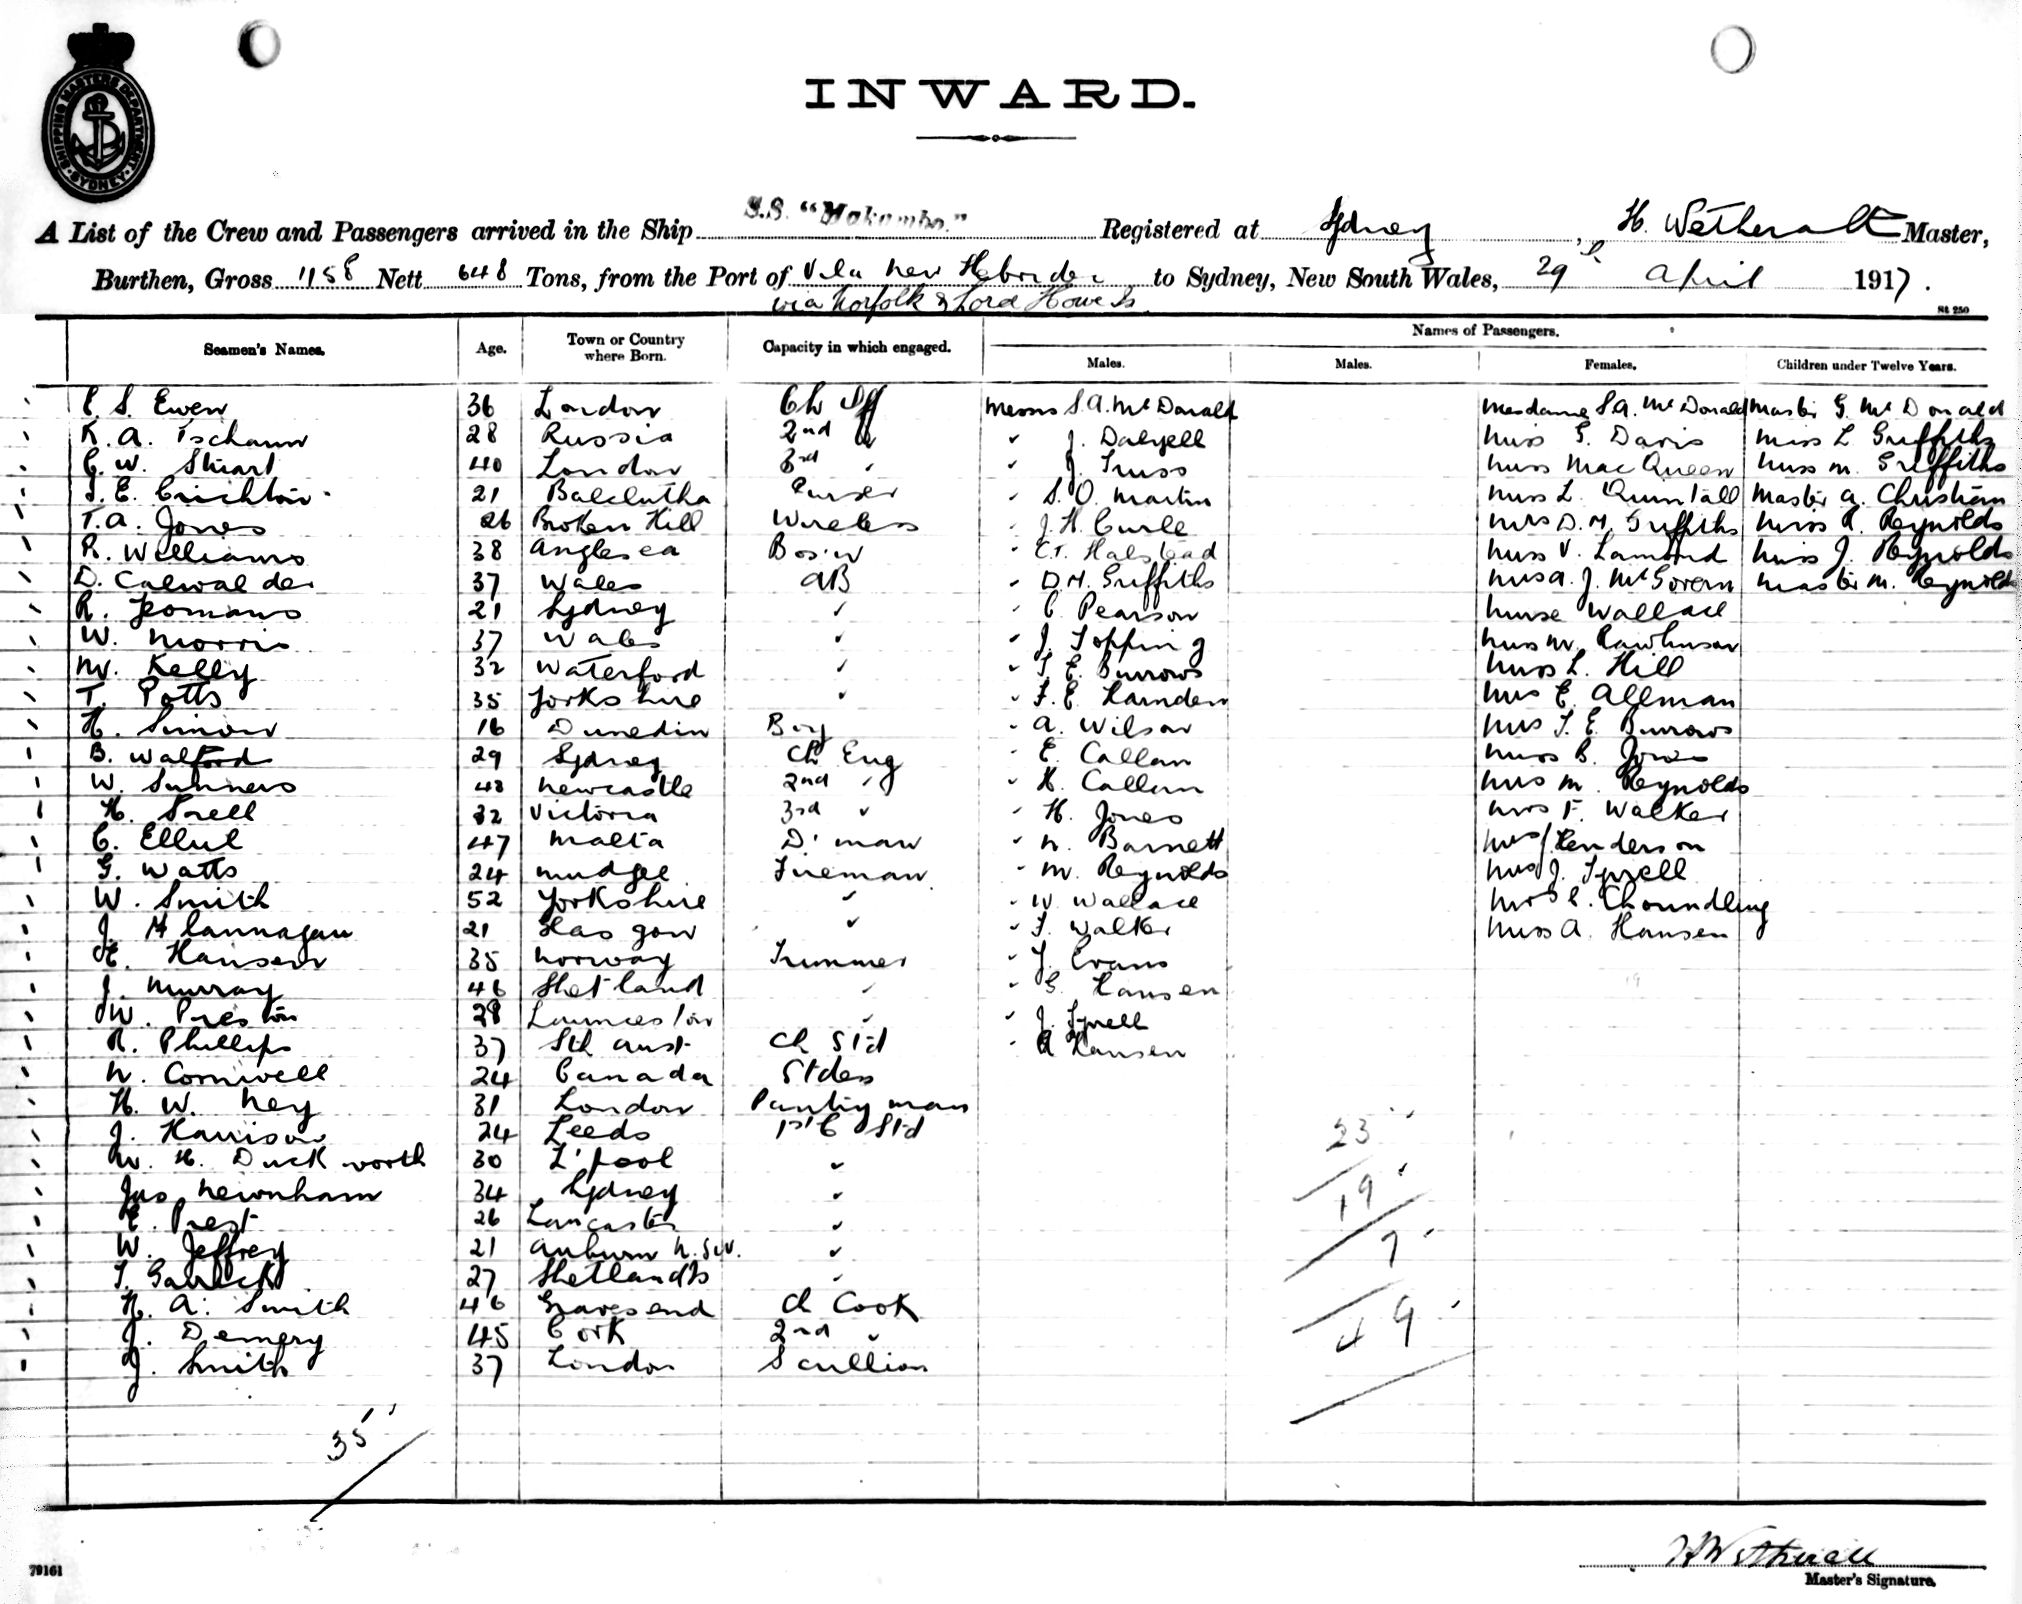 SHIPPING MASTERS DEPARTMENT
SYDNEY
INWARD.
A List of the Crew and Passengers arrived in the Ship S.S. "Makambo." Registered at Sydney, H. Wetherall Master,
Burthen, Gross 1158 Nett 648 Tons, from the Port of Vila New Hebrides to Sydney, New South Wales, 29th April 1917.
via Norfolk & Lord Howe Is.
St 250
Names of Passengers.
Seamen's Names. Age. Town or Country where Born. Capacity in which engaged. Males. Males. Females. Children under Twelve Years.
E. S. Ewen 36 London Ch Off Messrs S. A. McDonald Mesdame S A. McDonald Master G. McDonald
K. A. Tschaun 28 Russia 2nd " J. Dalzell Miss G. Davis Miss L Griffiths
C. W. Stuart 40 London 3rd " J. Truss Miss MacQueen Miss M. Griffiths
J. E. Crichton 21 Balclutha Purser S. O. Martin Miss L. Quintall Master A. Christian
T. A. Jones 26 Broken Hill Wireless J. H. Curle Mrs D. H. Griffiths Miss R. Reynolds
R. Williams 38 Anglesea Bos'n C. T. Halstead Miss V. Lamond Miss J. Reynolds
D. Calwalder 37 Wales AB D. H. Griffiths Miss A. J. McGovern Master M. Reynolds
R. Romans 21 Sydney " C Pearson Nurse Wallace
W. Morris 37 Wales " J. Topping Miss M. Rawlinson
M. Kelly 32 Waterford " T. E. Burrows Miss L. Hill
T. Potts 35 Yorkshire " F. E. Lamden Mrs E. Allman
H. Simon 16 Dunedin Boy A. Wilson Mrs T. E. Burrows
B. Walford 29 Sydney Ch Eng E. Callan Miss B. Jones
W. Sumners 48 Newcastle 2nd " H. Callan Mrs M. Reynolds
H. Snell 32 Victoria 3rd " H. Jones Mrs F. Walker
C. Ellul 47 Malta D'man N. Barnett Mrs Henderson
G. Watts 24 Mudgee Fireman M. Reynolds Mrs J. Tyrell
W. Smith 52 Yorkshire " W Wallace Mrs E. Choundling
J. McLannagan 21 Glasgow " F. Walker Miss A. Hansen
E. Hansen 35 Norway Trimmer J. Evans
J. Murray 46 Shetland " G. Hansen
W. Preston 28 Launceston " J. Tyrell
R. Phillips 37 Sth Aust Ch Std A Hansen
N. Cornwell 24 Canada Stdess
H. W. Ney 31 London Pantryman
J. Harrison 24 Leeds 1st C Std
W. H. Duckworth 30 L'pool "
Jas Newnham 34 Sydney "
E. Prest 26 Lancaster "
W. Jeffrey 21 Auburn N.S.W. "
T. Garrick 27 Shetland Is "
H. A. Smith 46 Gravesend Ch Cook
J. Demery 45 Cork 2nd "
J. Smith 37 London Scullion
23
19
7
49
35
79161
H Wetherall
Master's Signature.